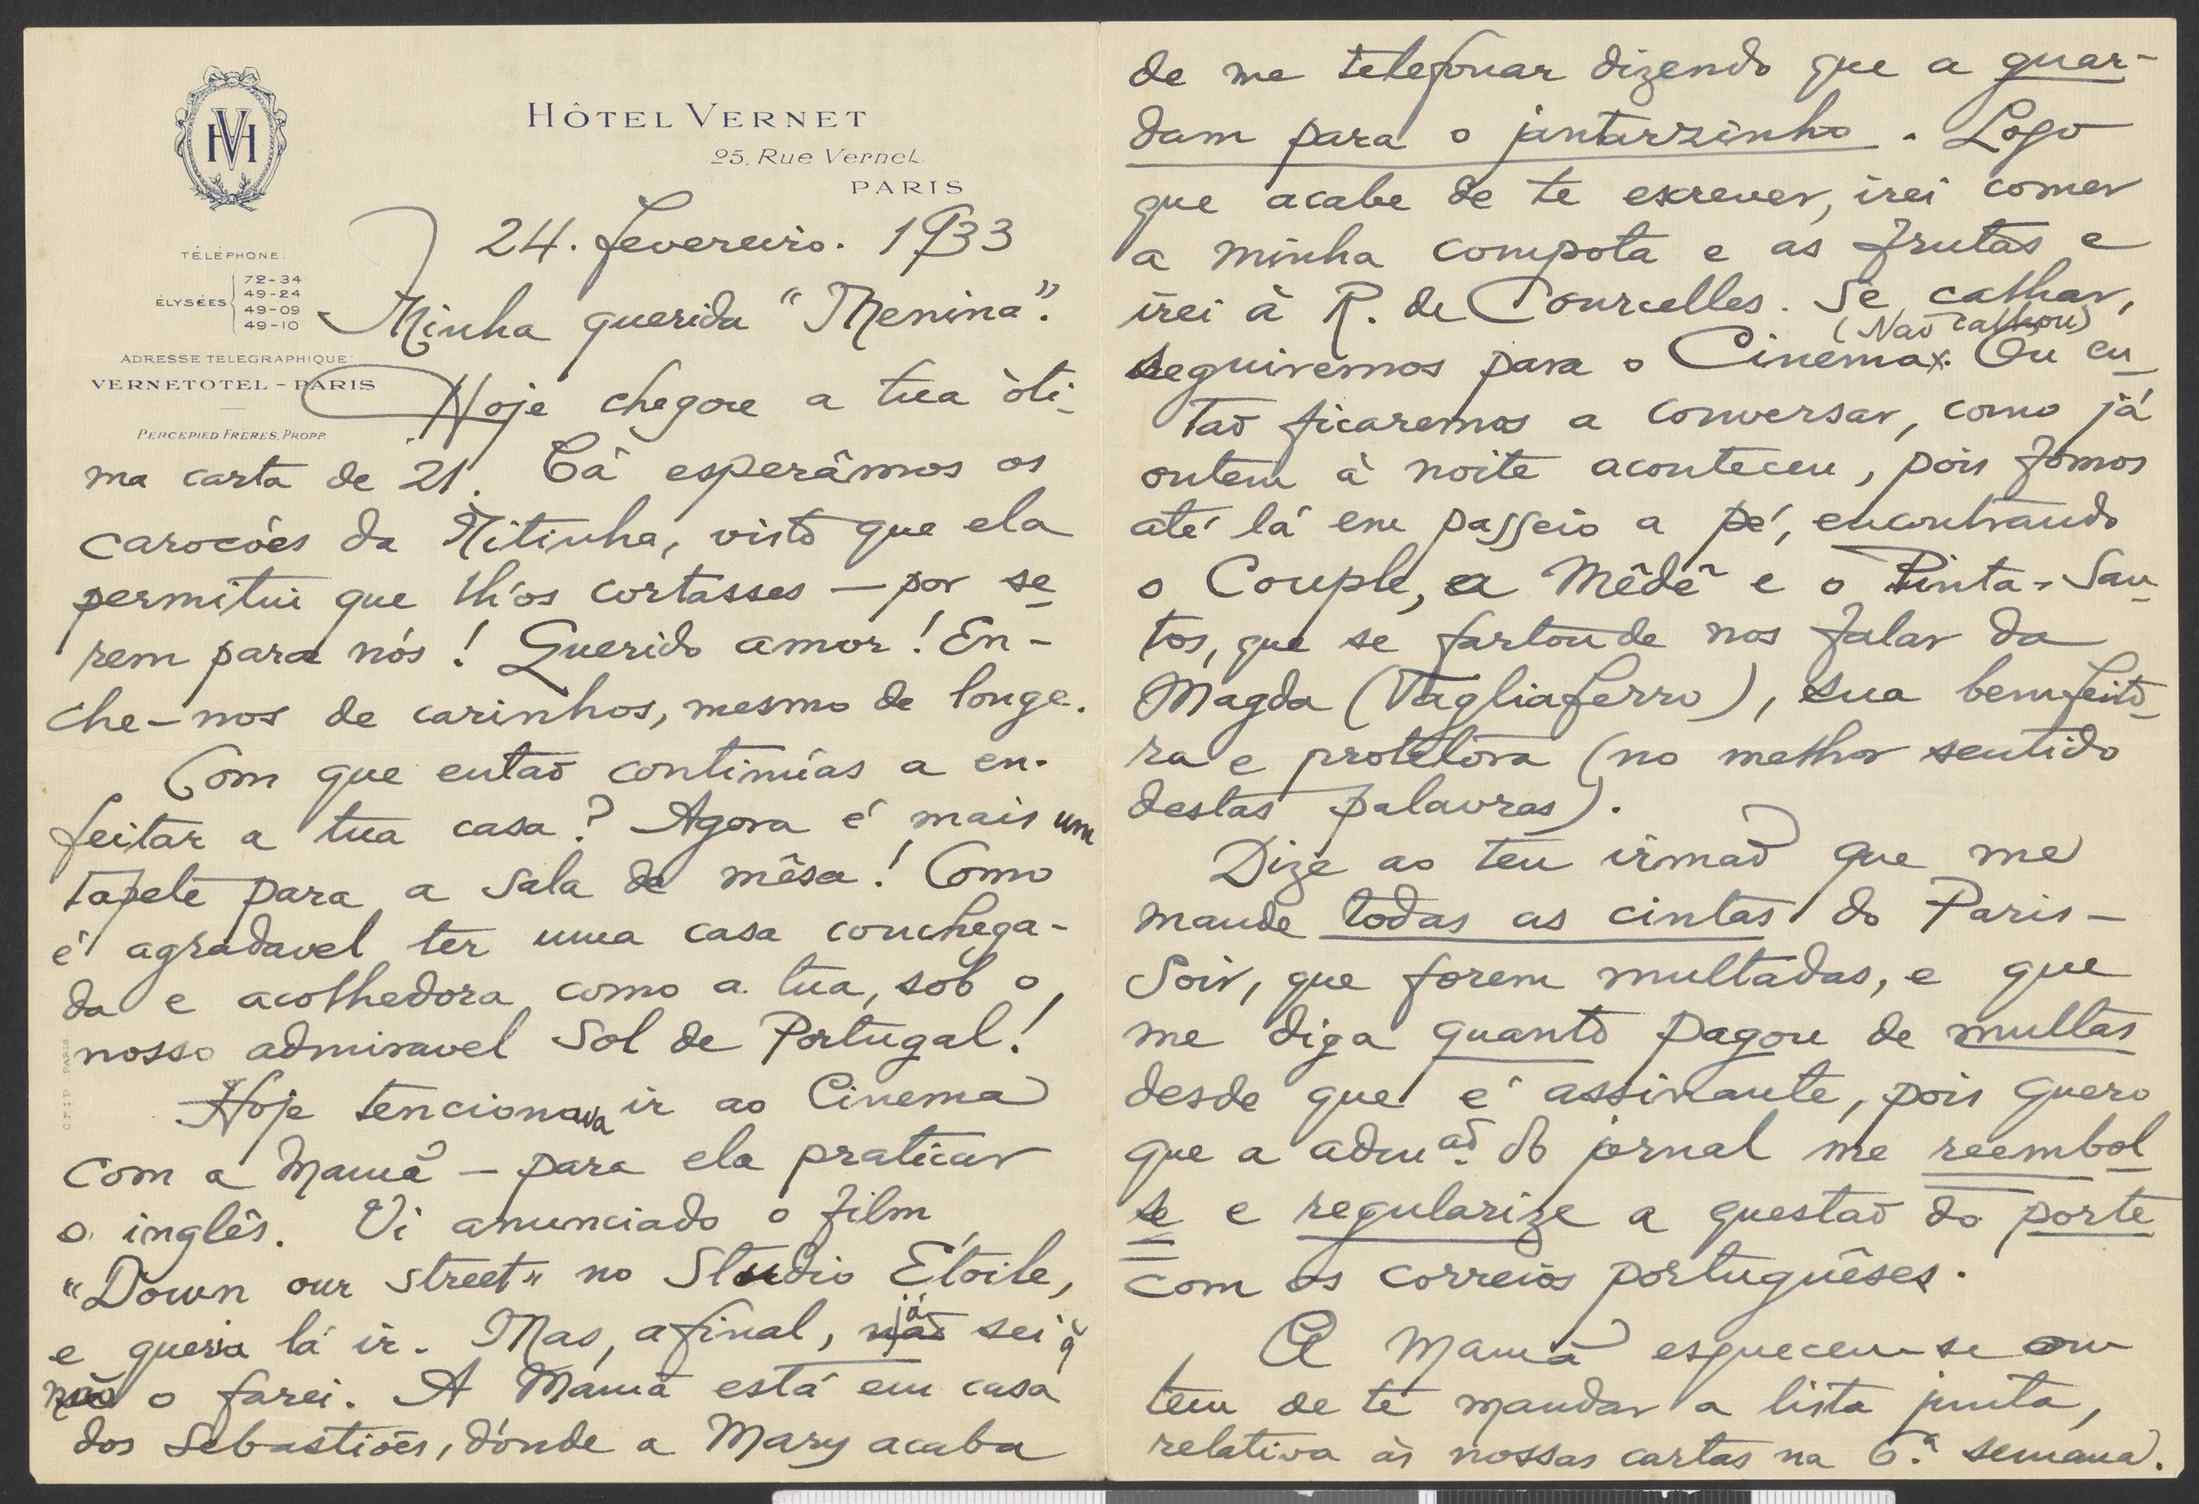 HÔTEL VERNET
25, Rue Vernet
PARIS
TÉLÉPHONE:
ÉLYSÉES
72-34
49-24
49-09
49-10
ADRESSE TELEGRAPHIQUE:
VERNETOTEL - PARIS
PERCEPIED FRERES, PROPP.
24. fevereiro. 1933
Minha querida "Menina".
Hoje chegou a tua òti-
ma carta de 21. Cá esperâmos os
carocóes da Titinha, visto que ela
permitui que lh'os cortasses — por se-
rem para nós! Querido amor! En-
che-nos de carinhos, mesmo de longe.
Com que entaõ continúas a en-
feitar a tua casa? Agora é mais um
tapete para a sala de mêsa! Como
é agradavel ter uma casa conchega-
da e acolhedora como a tua, sob o
nosso admiravel Sol de Portugal!
Hoje tencionava ir ao Cinema
com a Mamã — para ela praticar
o inglês. Vi anunciado o film
"Down our street" no Studio Étoile,
e queria lá ir. Mas, afinal, já sei q̃
não o farei. A Mamã está em casa
dos Sebastiões, dónde a Mary acaba
de me telefonar dizendo que a guar-
dam para o jantarzinho. Logo
que acabe de te escrever, irei comer
a minha compota e as frutas e
irei à R. de Courcelles. Se calhar,
(Naõ calhou)
seguiremos para o Cinemax. Ou en-
taõ ficaremos a conversar, como já
ontem à noite aconteceu, pois fomos
até lá em passeio a pé, encontrando
o Couple, a Mêdê e o Pinta-San-
tos, que se fartou de nos falar da
Magda (Tagliaferro), sua bemfeito-
ra e protetora (no melhor sentido
destas palavras).
Dize ao teu irmaõ que me
mande todas as cintas do Paris-
Soir, que forem multadas, e que
me diga quanto pagou de multas
desde que é assinante, pois quero
que a admaõ. do jornal me reembol-
se e regularize a questaõ do porte
com os correios portuguêses.
A Mamã esqueceu-se on-
tem de te mandar a lista junta,
relativa às nossas cartas na 6.ª semana.